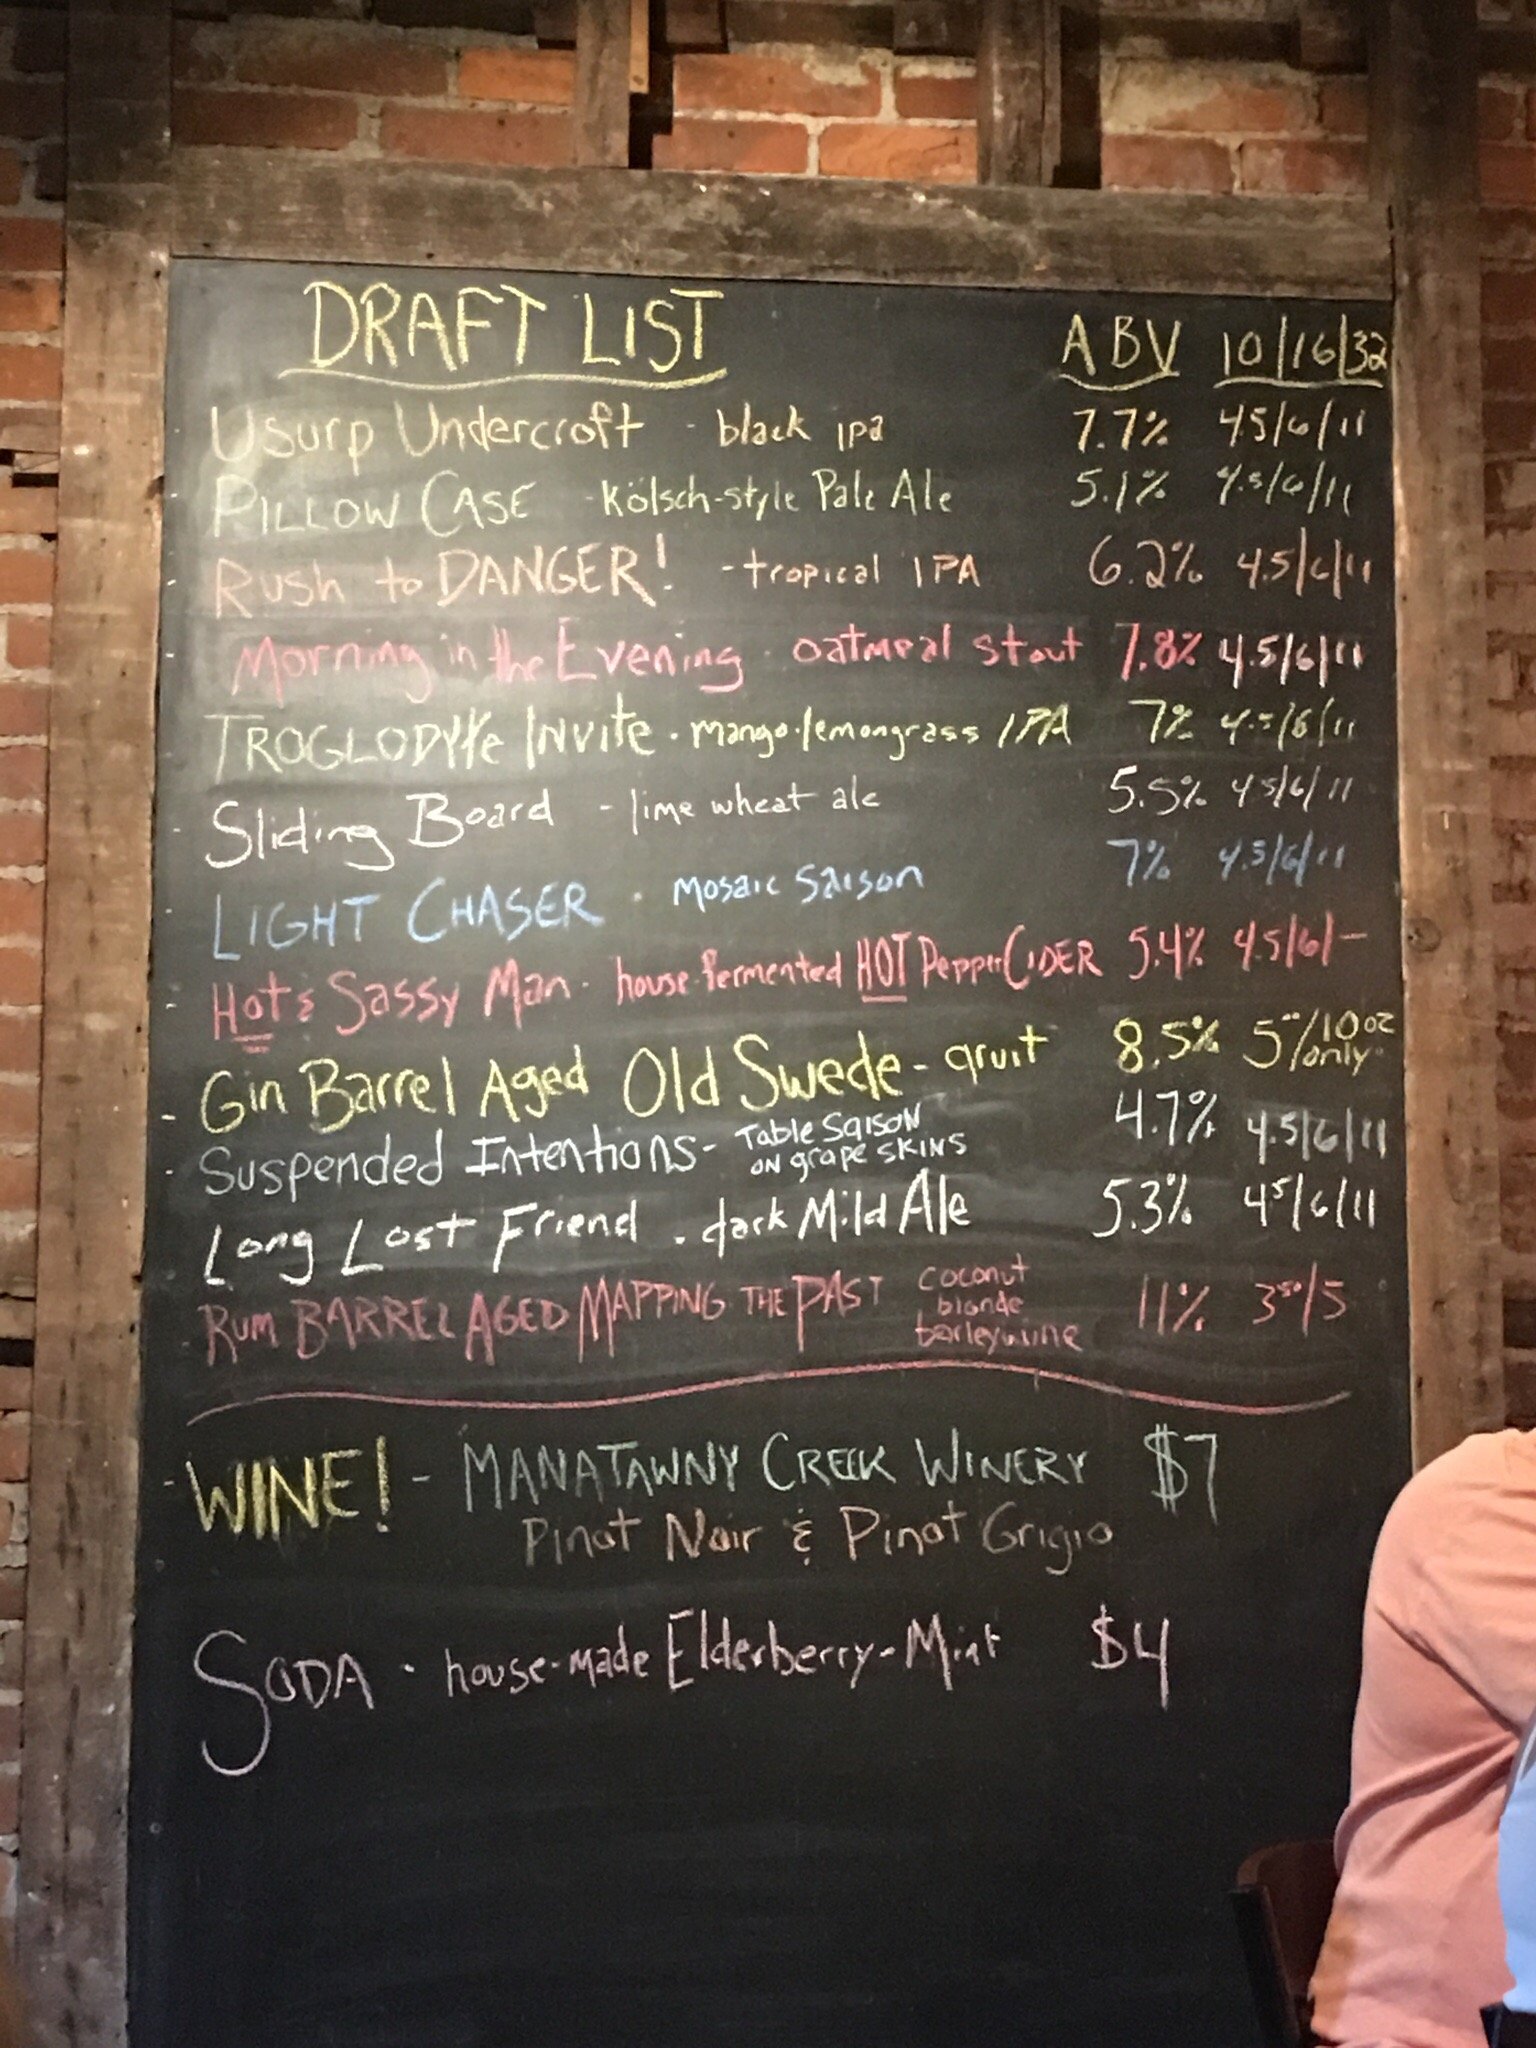 DRAFT LIST ABV 10/16/32
Usurp Undercroft - black ipa 7.7% 4.5/6/11
PILLOW CASE - Kölsch-style Pale Ale 5.1% 4.5/6/11
Rush to DANGER! - tropical IPA 6.2% 4.5/6/11
Morning in the Evening · oatmeal stout 7.8% 4.5/6/11
TROGLODYTE INVITE · mango·lemongrass IPA 7% 4.5/6/11
Sliding Board - lime wheat ale 5.5% 4.5/6/11
LIGHT CHASER · Mosaic Saison 7% 4.5/6/11
Hot & Sassy Man · house-fermented HOT Pepper CIDER 5.4% 4.5/6/-
- Gin Barrel Aged Old Swede - gruit 8.5% 5/10oz only
- Suspended Intentions - Table Saison 4.7% 4.5/6/11
on grape skins
Long Lost Friend · dark Mild Ale 5.3% 4.5/6/11
- RUM BARREL AGED MAPPING THE PAST coconut 11% 3.50/5
blonde
barleywine
- WINE! - MANATAWNY CREEK WINERY $7
Pinot Noir & Pinot Grigio
SODA · house-made Elderberry-Mint $4